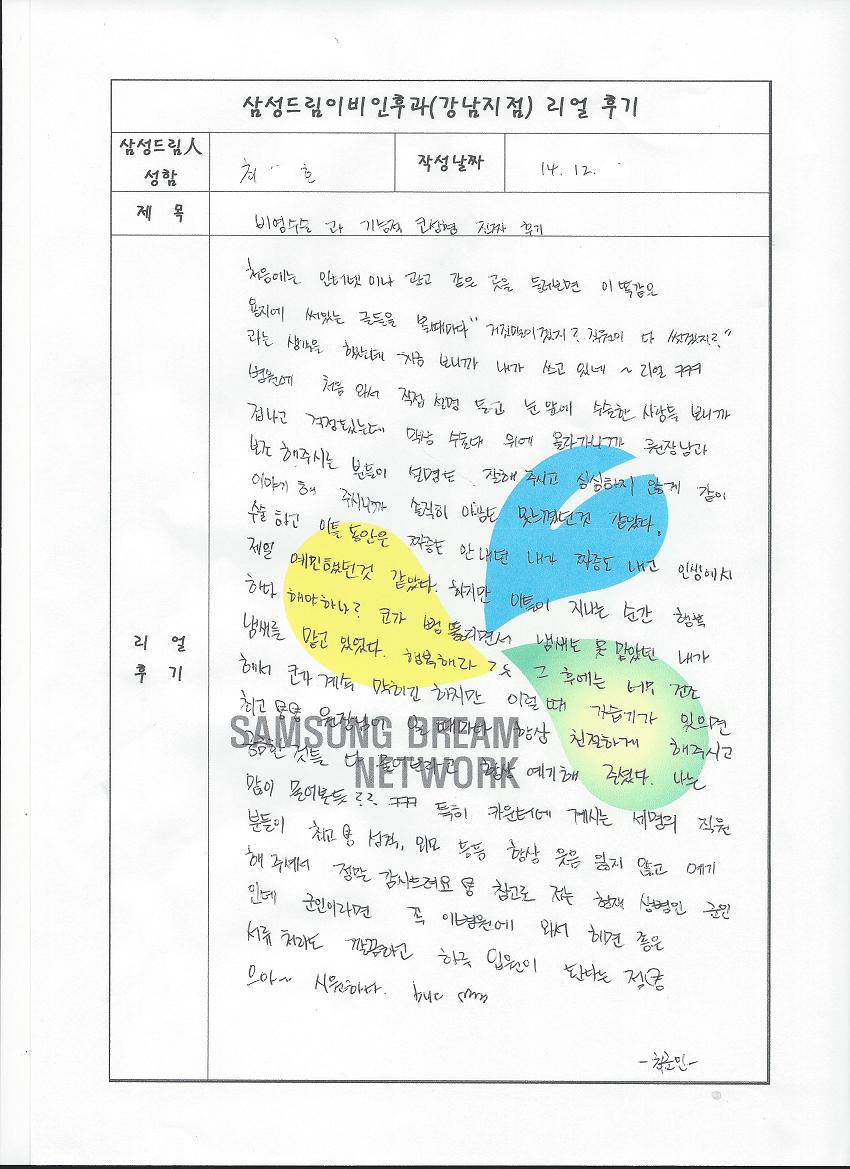 삼성드림이비인후과(강남지점) 리얼 후기
삼성드림人
성함
최 호
작성날짜
14. 12.
제 목
비염수술 과 기능적 코성형 진짜 후기
리 얼
후 기
처음에는 인터넷이나 광고 같은 곳을 둘러보면 이 똑같은
용지에 써있는 글들을 볼때마다 "거짓말이겠지? 직원이 다 썼겠지?"
라는 생각을 했었는데 지금 보니까 내가 쓰고 있네 ~ 리얼 ㅋㅋㅋ
병원에 처음 와서 직접 설명 듣고 눈 앞에 수술한 사람들 보니까
겁나고 걱정도됐는데 막상 수술대 위에 올라가니까 원장님과
보조 해주시는 분들이 설명도 잘해 주시고 심심하지 않게 같이
이야기 해 주시니까 솔직히 아픔도 못느꼈던것 같았다.
수술 하고 이틀 동안은 짜증도 안내던 내가 짜증도 내고 인생에서
제일 예민했던것 같았다. 하지만 이틀이 지나는 순간 행복
하다 해야하나? 코가 뻥 뚫리면서 냄새도 못 맡았던 내가
냄새를 맡고 있었다. 행복해라 그 후에는 너무 건조
해서 코가 계속 막히긴 하지만 이럴 때 가습기가 있으면
최고 원장님이 올 때마다 항상 친절하게 해주시고
궁금한 것들 다 물어보라고 항상 얘기해 주셨다. 나는
많이 물어본듯?? ㅋㅋㅋ 특히 카운터에 계시는 세명의 직원
분들이 최고 성격, 외모 등등 항상 웃음 잃지 않고 얘기
해 주셔서 정말 감사드려요 참고로 저는 현재 상병인 군인
인데 군인이라면 꼭 이병원에 와서 하면 좋은
서류 처리도 깔끔하고 하루 입원이 된다는 점
으아~ 시원하다.
SAMSUNG DREAM
NETWORK
-최군인-